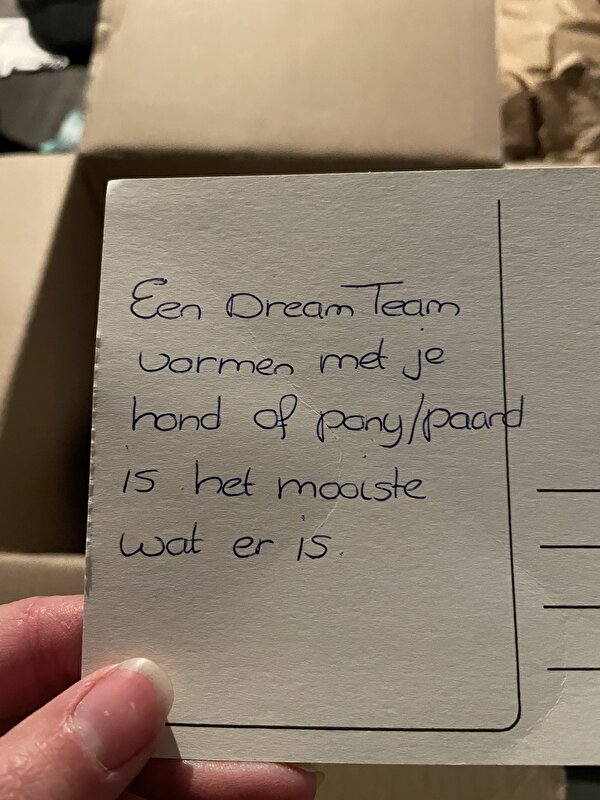 Een Dream Team
vormen met je
hond of pony/paard
is het mooiste
wat er is.